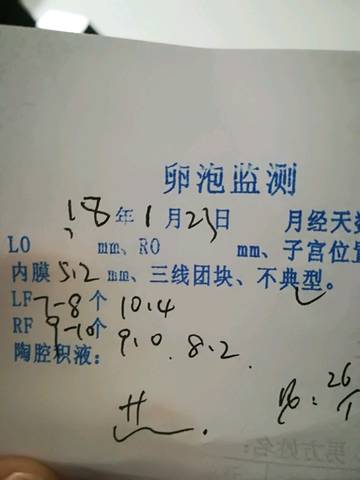 卵泡监测
18年1月23日 月经天数
LO mm、RO mm、子宫位置
内膜5.2mm、三线团块、不典型。
LF 7-8个 10.4
RF 9-10个 9.0、8.2
陶腔积液:
26
男方姓名: